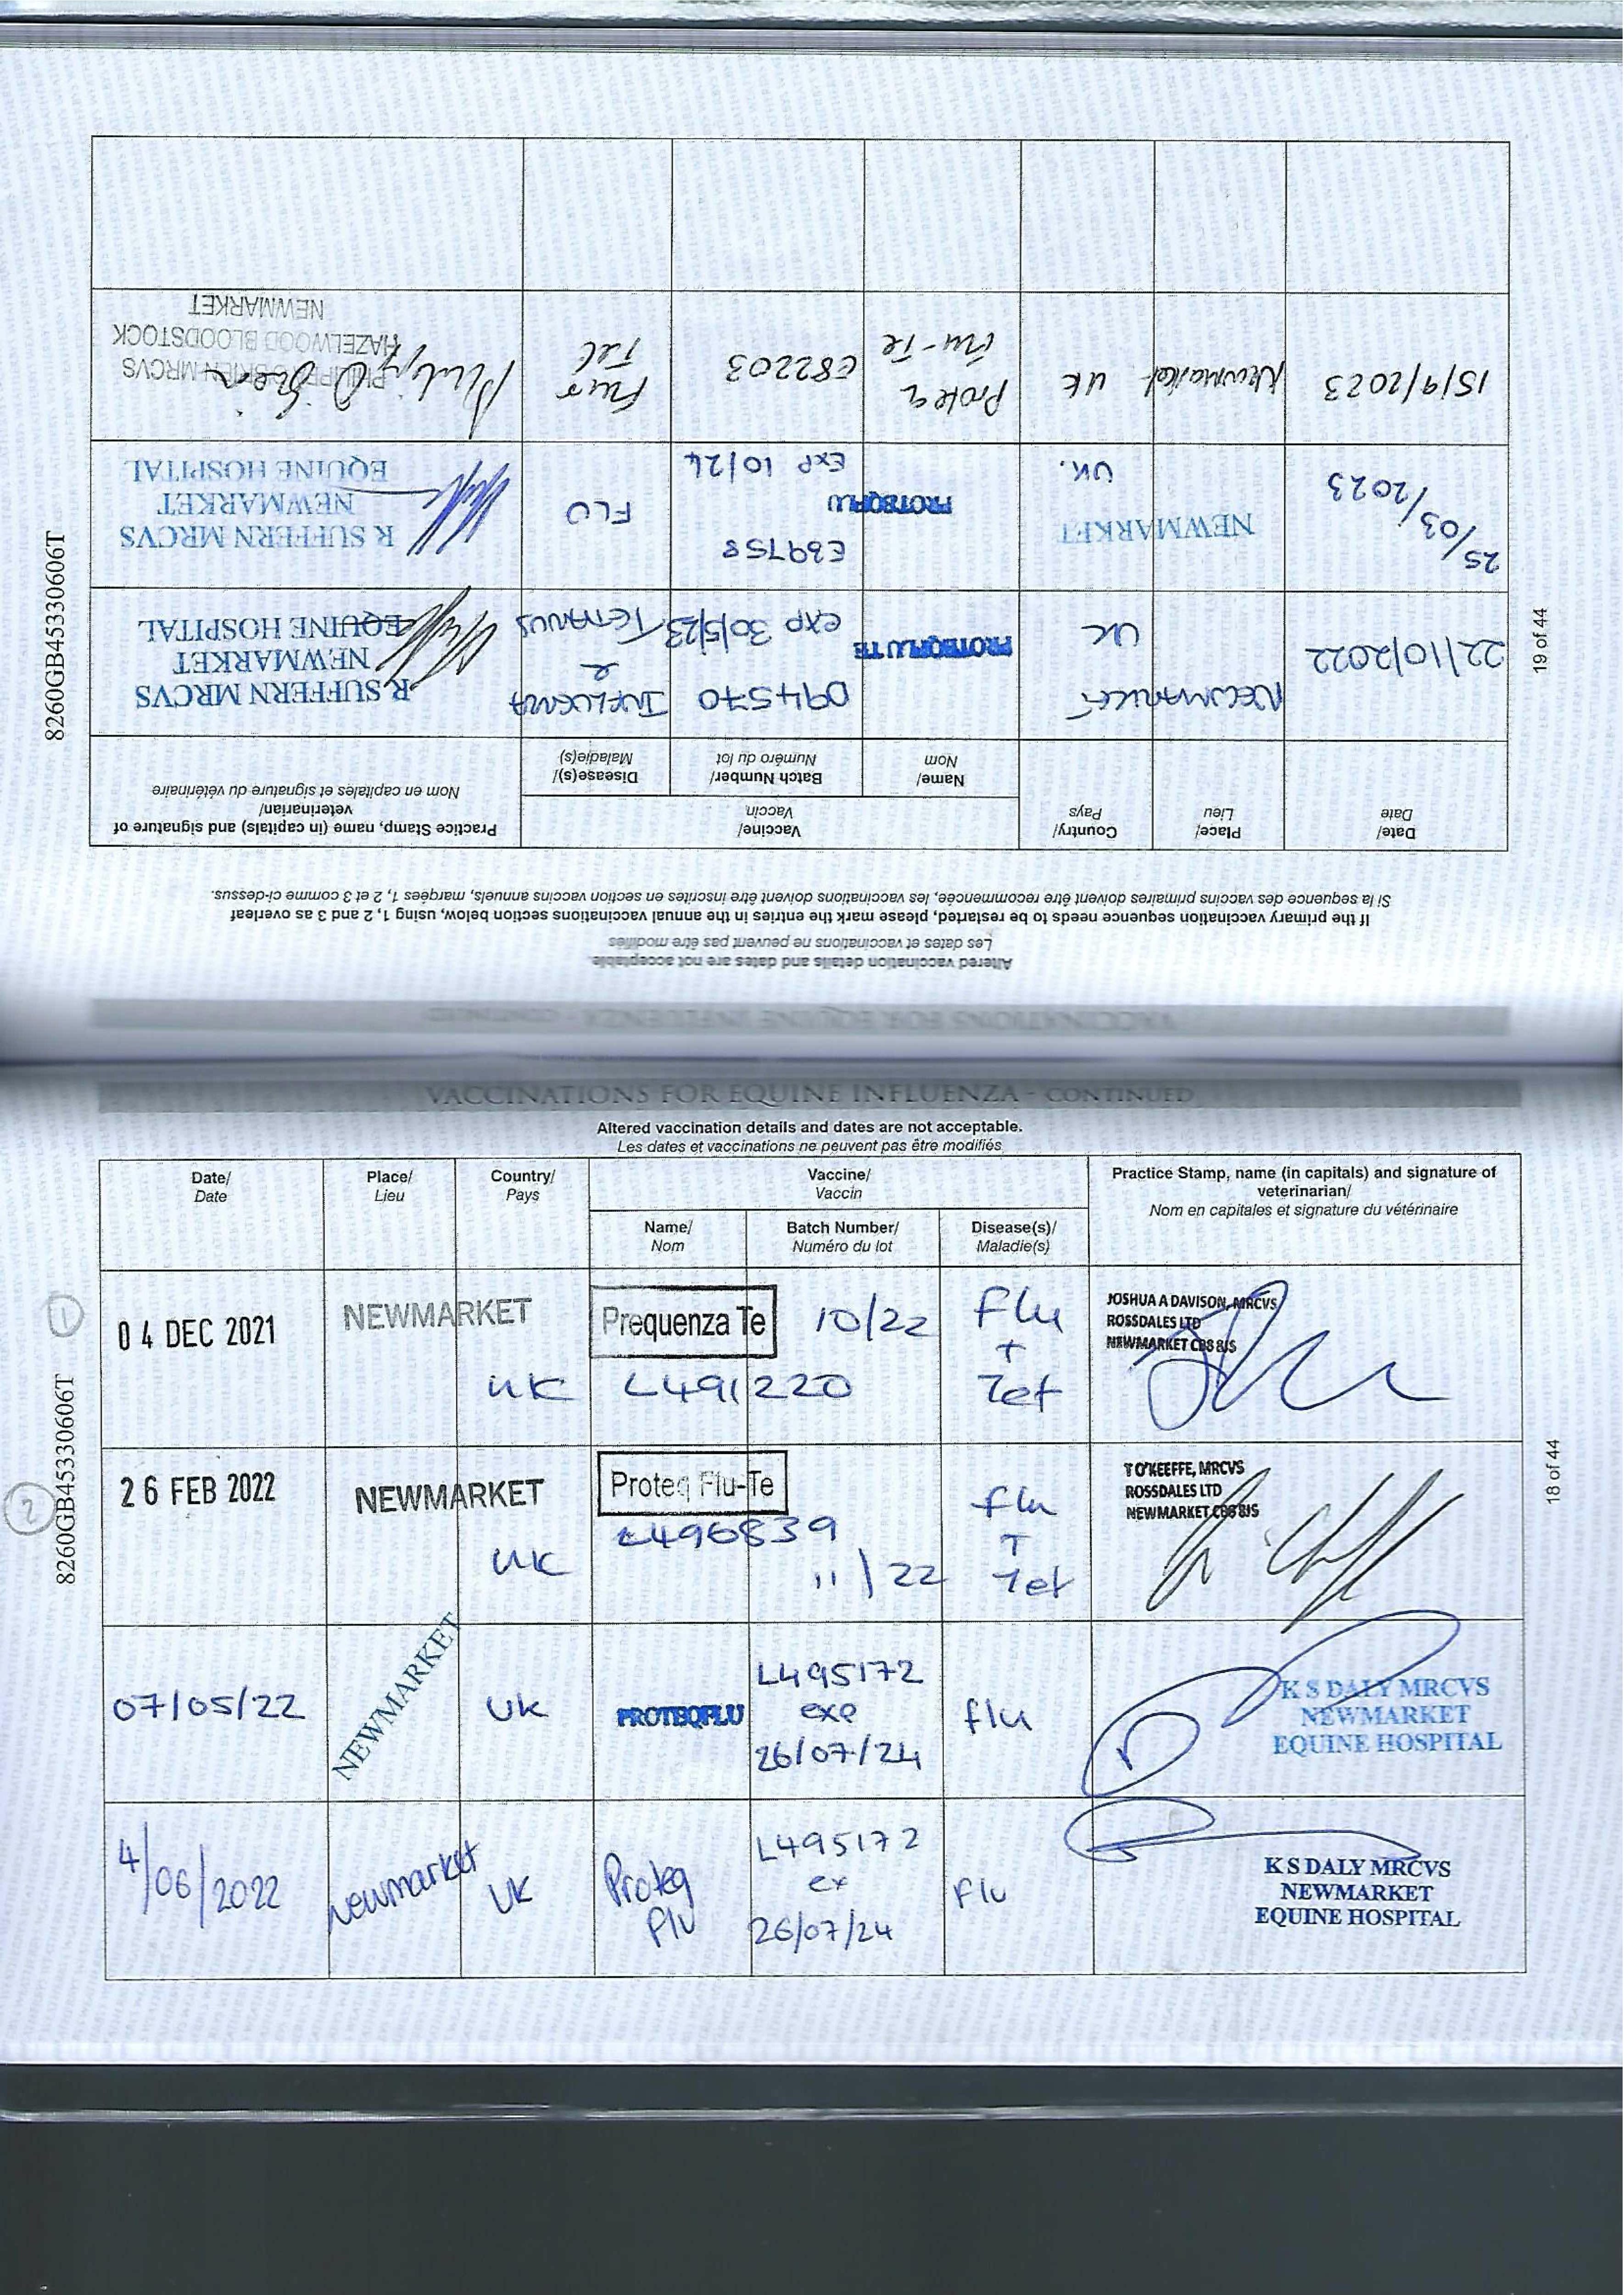 VACCINATIONS FOR EQUINE INFLUENZA - CONTINUED
Altered vaccination details and dates are not acceptable.
Les dates et vaccinations ne peuvent pas être modifiés
Date/ Place/ Country/ Vaccine/ Practice Stamp, name (in capitals) and signature of
Date Lieu Pays Vaccin veterinarian/
Nom en capitales et signature du vétérinaire
Name/ Batch Number/ Disease(s)/
Nom Numéro du lot Maladie(s)
1
04 DEC 2021 NEWMARKET Prequenza Te 10/22 Flu JOSHUA A DAVISON, MRCVS
+ ROSSDALES LTD
UK L491220 Tet NEWMARKET CB8 8JS
2
26 FEB 2022 NEWMARKET Proteq Flu-Te flu T O'KEEFFE, MRCVS
L496839 + ROSSDALES LTD
UK 11/22 Tet NEWMARKET CB8 8JS
07/05/22 NEWMARKET UK PROTEQFLU L495172 flu K S DALY MRCVS
exp NEWMARKET
26/07/24 EQUINE HOSPITAL
4/06/2022 Newmarket UK Proteq L495172 Flu K S DALY MRCVS
Flu ex NEWMARKET
26/07/24 EQUINE HOSPITAL
8260GB45330606T
18 of 44
VACCINATIONS FOR EQUINE INFLUENZA - CONTINUED
Altered vaccination details and dates are not acceptable.
Les dates et vaccinations ne peuvent pas être modifiés
If the primary vaccination sequence needs to be restarted, please mark the entries in the annual vaccinations section below, using 1, 2 and 3 as overleaf
Si la sequence des vaccins primaires doivent être recommencée, les vaccinations doivent être inscrites en section vaccins annuels, marqées 1, 2 et 3 comme ci-dessus.
Date/ Place/ Country/ Vaccine/ Practice Stamp, name (in capitals) and signature of
Date Lieu Pays Vaccin veterinarian/
Nom en capitales et signature du vétérinaire
Name/ Batch Number/ Disease(s)/
Nom Numéro du lot Maladie(s)
22/10/2022 NEWMARKET UK PROTEQFLU TE 094570 INFLUENZA R SUFFERN MRCVS
& NEWMARKET
EXP 30/5/23 TETANUS EQUINE HOSPITAL
25/03/2023 NEWMARKET UK. PROTEQFLU E89758 FLU R SUFFERN MRCVS
NEWMARKET
EXP 10/24 EQUINE HOSPITAL
15/9/2023 Newmarket UK Proteq E82203 Flu MRCVS
Flu-Te Tet HAZELWOOD BLOODSTOCK
NEWMARKET
8260GB45330606T
19 of 44